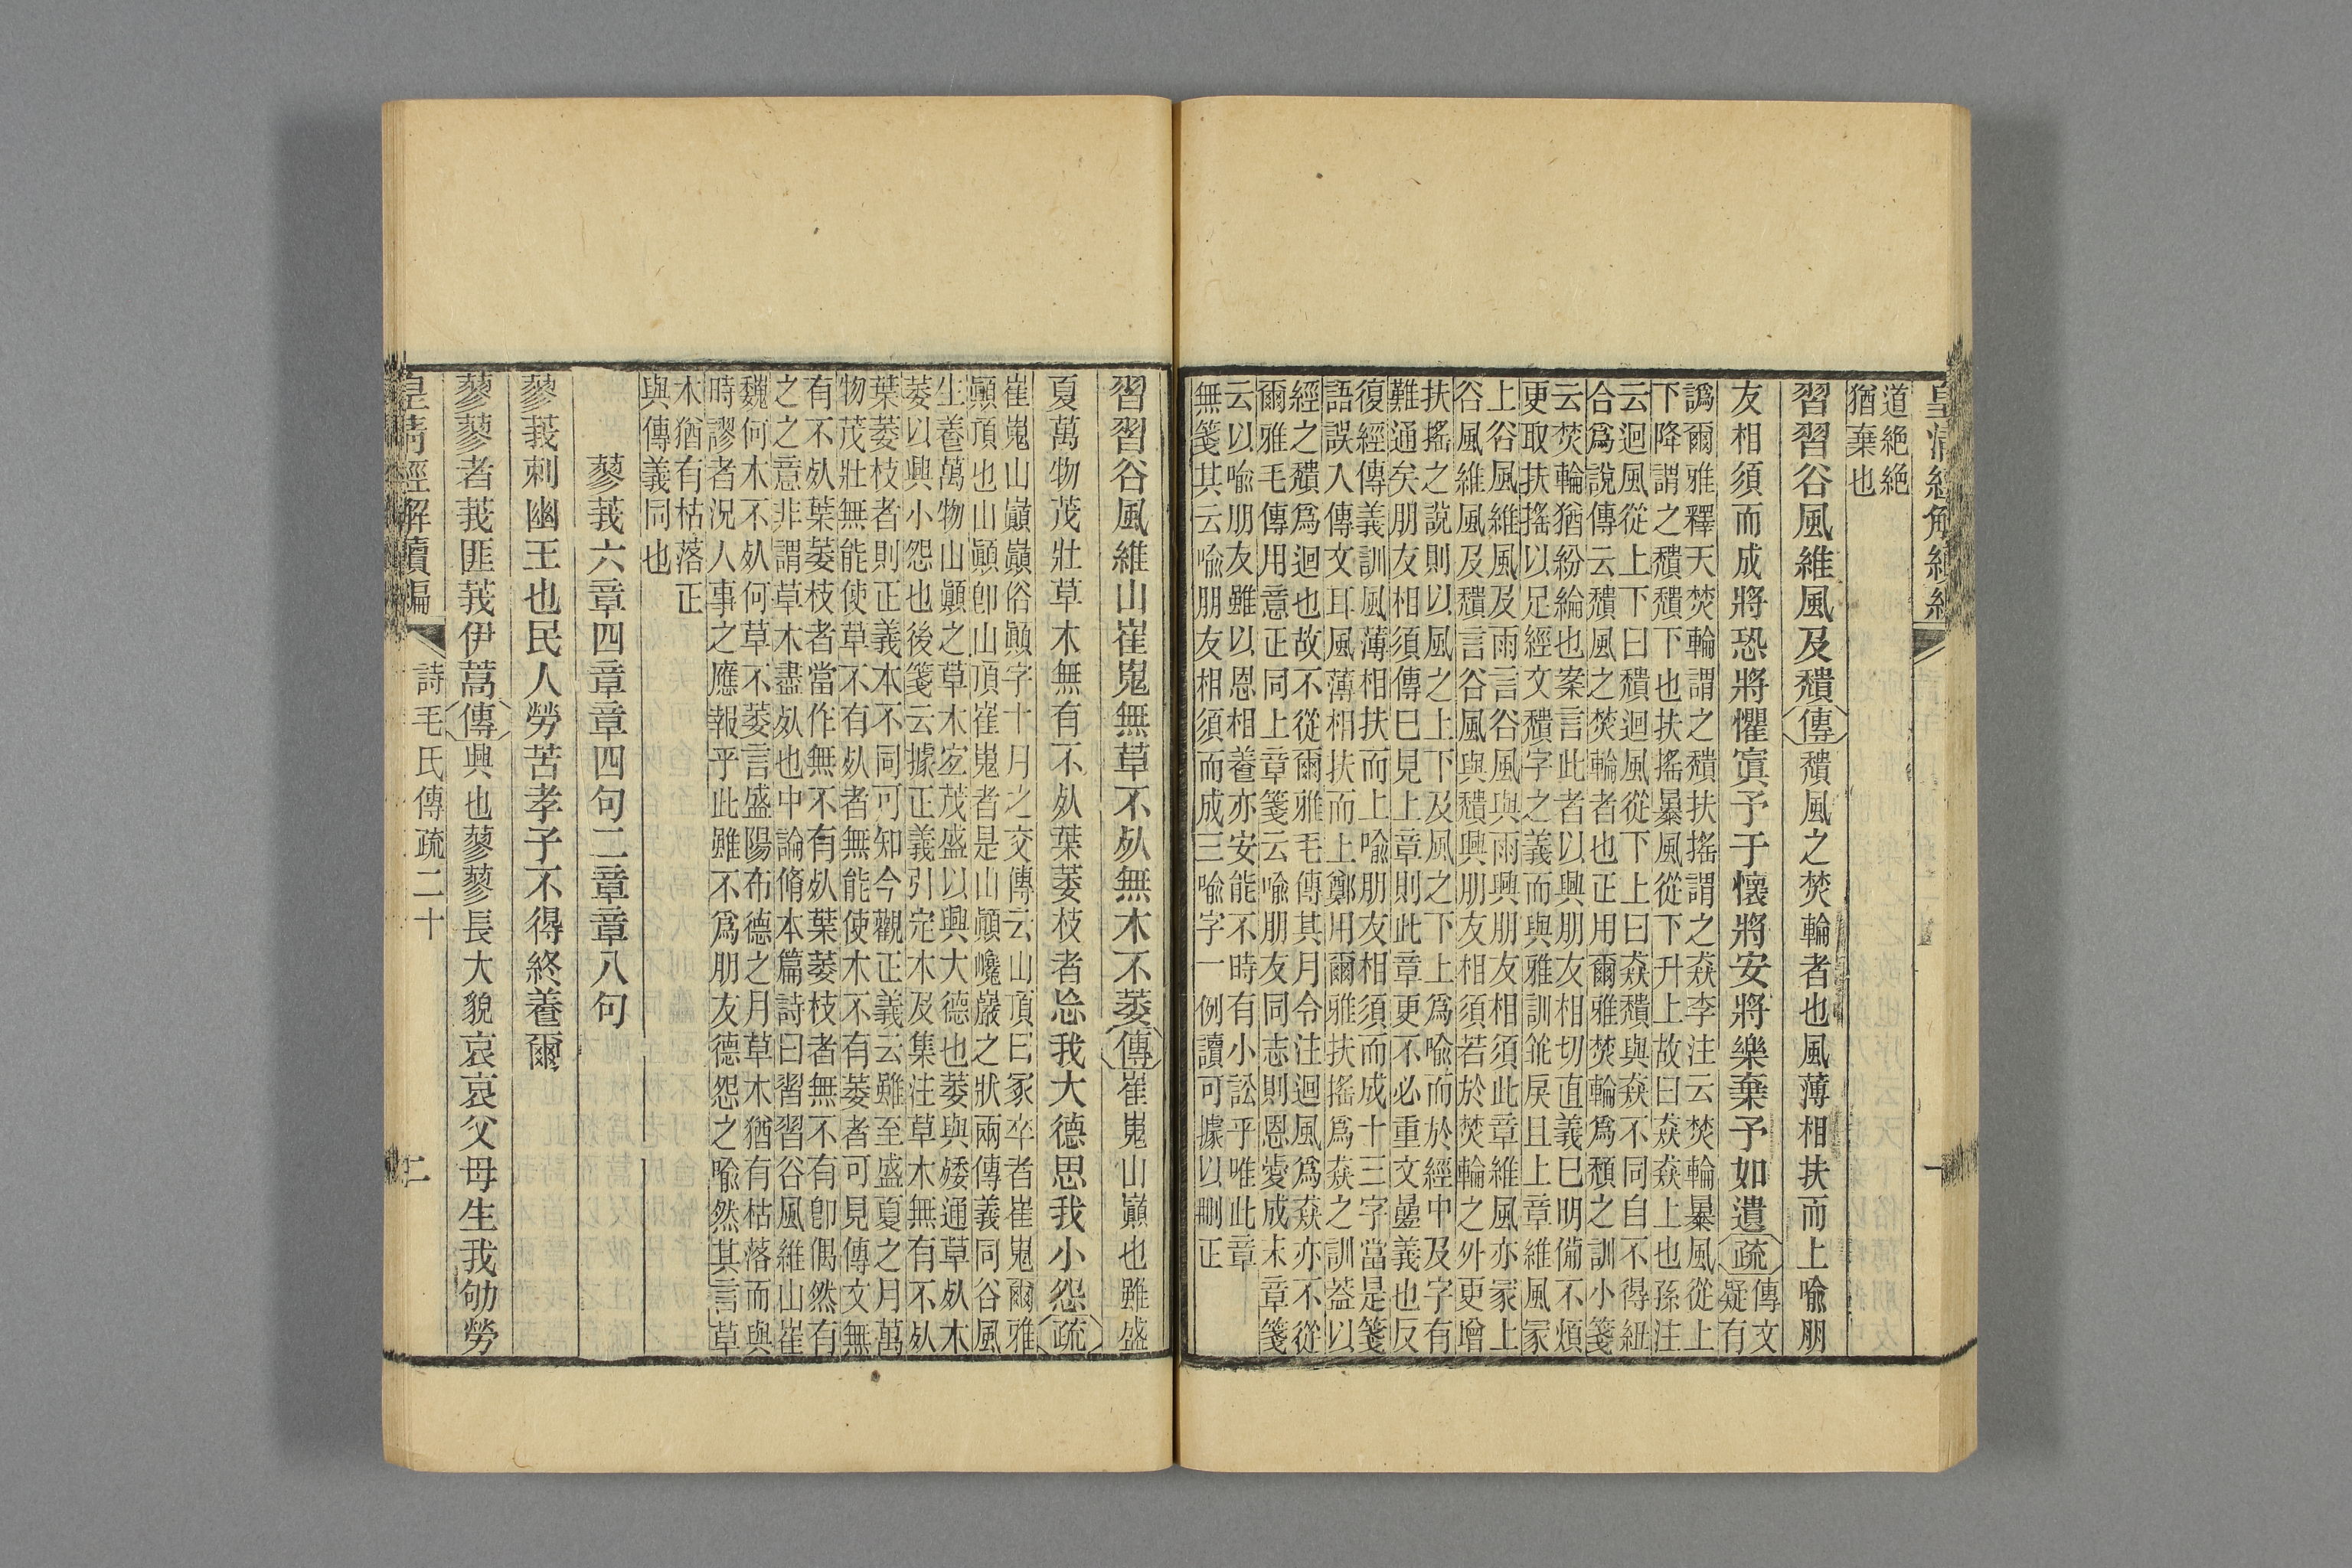 皇清經解續編
道絶絶
猶棄也
習習谷風維風及穨傳穨風之焚輪者也風薄相扶而上喻朋
友相須而成將恐將懼寘予于懷將安將樂棄予如遺疏傳文
疑有
譌爾雅釋天焚輪謂之穨扶搖謂之猋李注云焚輪暴風從上
下降謂之穨穨下也扶搖暴風從下升上故曰猋猋上也孫注
云迴風從上下曰穨迴風從下上曰猋穨與猋不同自不得紐
合爲說傳云穨風之焚輪者也正用爾雅焚輪爲穨之訓小箋
云焚輪猶紛綸也案言此者以興朋友相切直義巳明備不煩
更取扶搖以足經文穨字之義而與雅訓毣戾且上章維風冡
上谷風維風及雨言谷風與雨興朋友相須此章維風亦冡上
谷風維風及穨言谷風與穨興朋友相須若於焚輪之外更增
扶搖之說則以風之上下及風之下上爲喻而於經中及字有
難通矣朋友相須傳巳見上章則此章更不必重文曡義也反
復經傳義訓風薄相扶而上喻朋友相須而成十三字當是箋
語誤入傳文耳風薄相扶而上鄭用爾雅扶搖爲猋之訓葢以
經之穨爲迴也故不從爾雅毛傳其月令注迴風爲猋亦不從
爾雅毛傳用意正同上章箋云喻朋友同志則恩愛成末章箋
云以喻朋友雖以恩相養亦安能不時有小訟乎唯此章
無箋其云喻朋友相須而成三喻字一例讀可據以刪正
習習谷風維山崔嵬無草不𣦸無木不萎傳崔嵬山巓也雖盛
夏萬物茂壯草木無有不𣦸葉萎枝者忘我大德思我小怨疏
崔嵬山巓巓俗顚字十月之交傳云山頂曰冢卒者崔嵬爾雅
顚頂也山顚卽山頂崔嵬者是山顚巉巖之狀兩傳義同谷風
生養萬物山顚之草木宐茂盛以興大德也萎與矮通草𣦸木
萎以興小怨也後箋云據正義引定木及集注草木無有不𣦸
葉萎枝者則正義本不同可知今觀正義云雖至盛夏之月萬
物茂壯無能使草不有𣦸者無能使木不有萎者可見傳文無
有不𣦸葉萎枝者當作無不有𣦸葉萎枝者無不有卽偶然有
之之意非謂草木盡𣦸也中論脩本篇詩曰習習谷風維山崔
巍何木不𣦸何草不萎言盛陽布德之月草木猶有枯落而與
時謬者況人事之應報乎此雖不爲朋友德怨之喻然其言草
木猶有枯落正
與傳義同也
蓼莪六章四章章四句二章章八句
蓼莪刺幽王也民人勞苦孝子不得終養爾
蓼蓼者莪匪莪伊蒿傳興也蓼蓼長大貌哀哀父母生我劬勞
皇清經解續編
詩毛氏傳疏二十
二